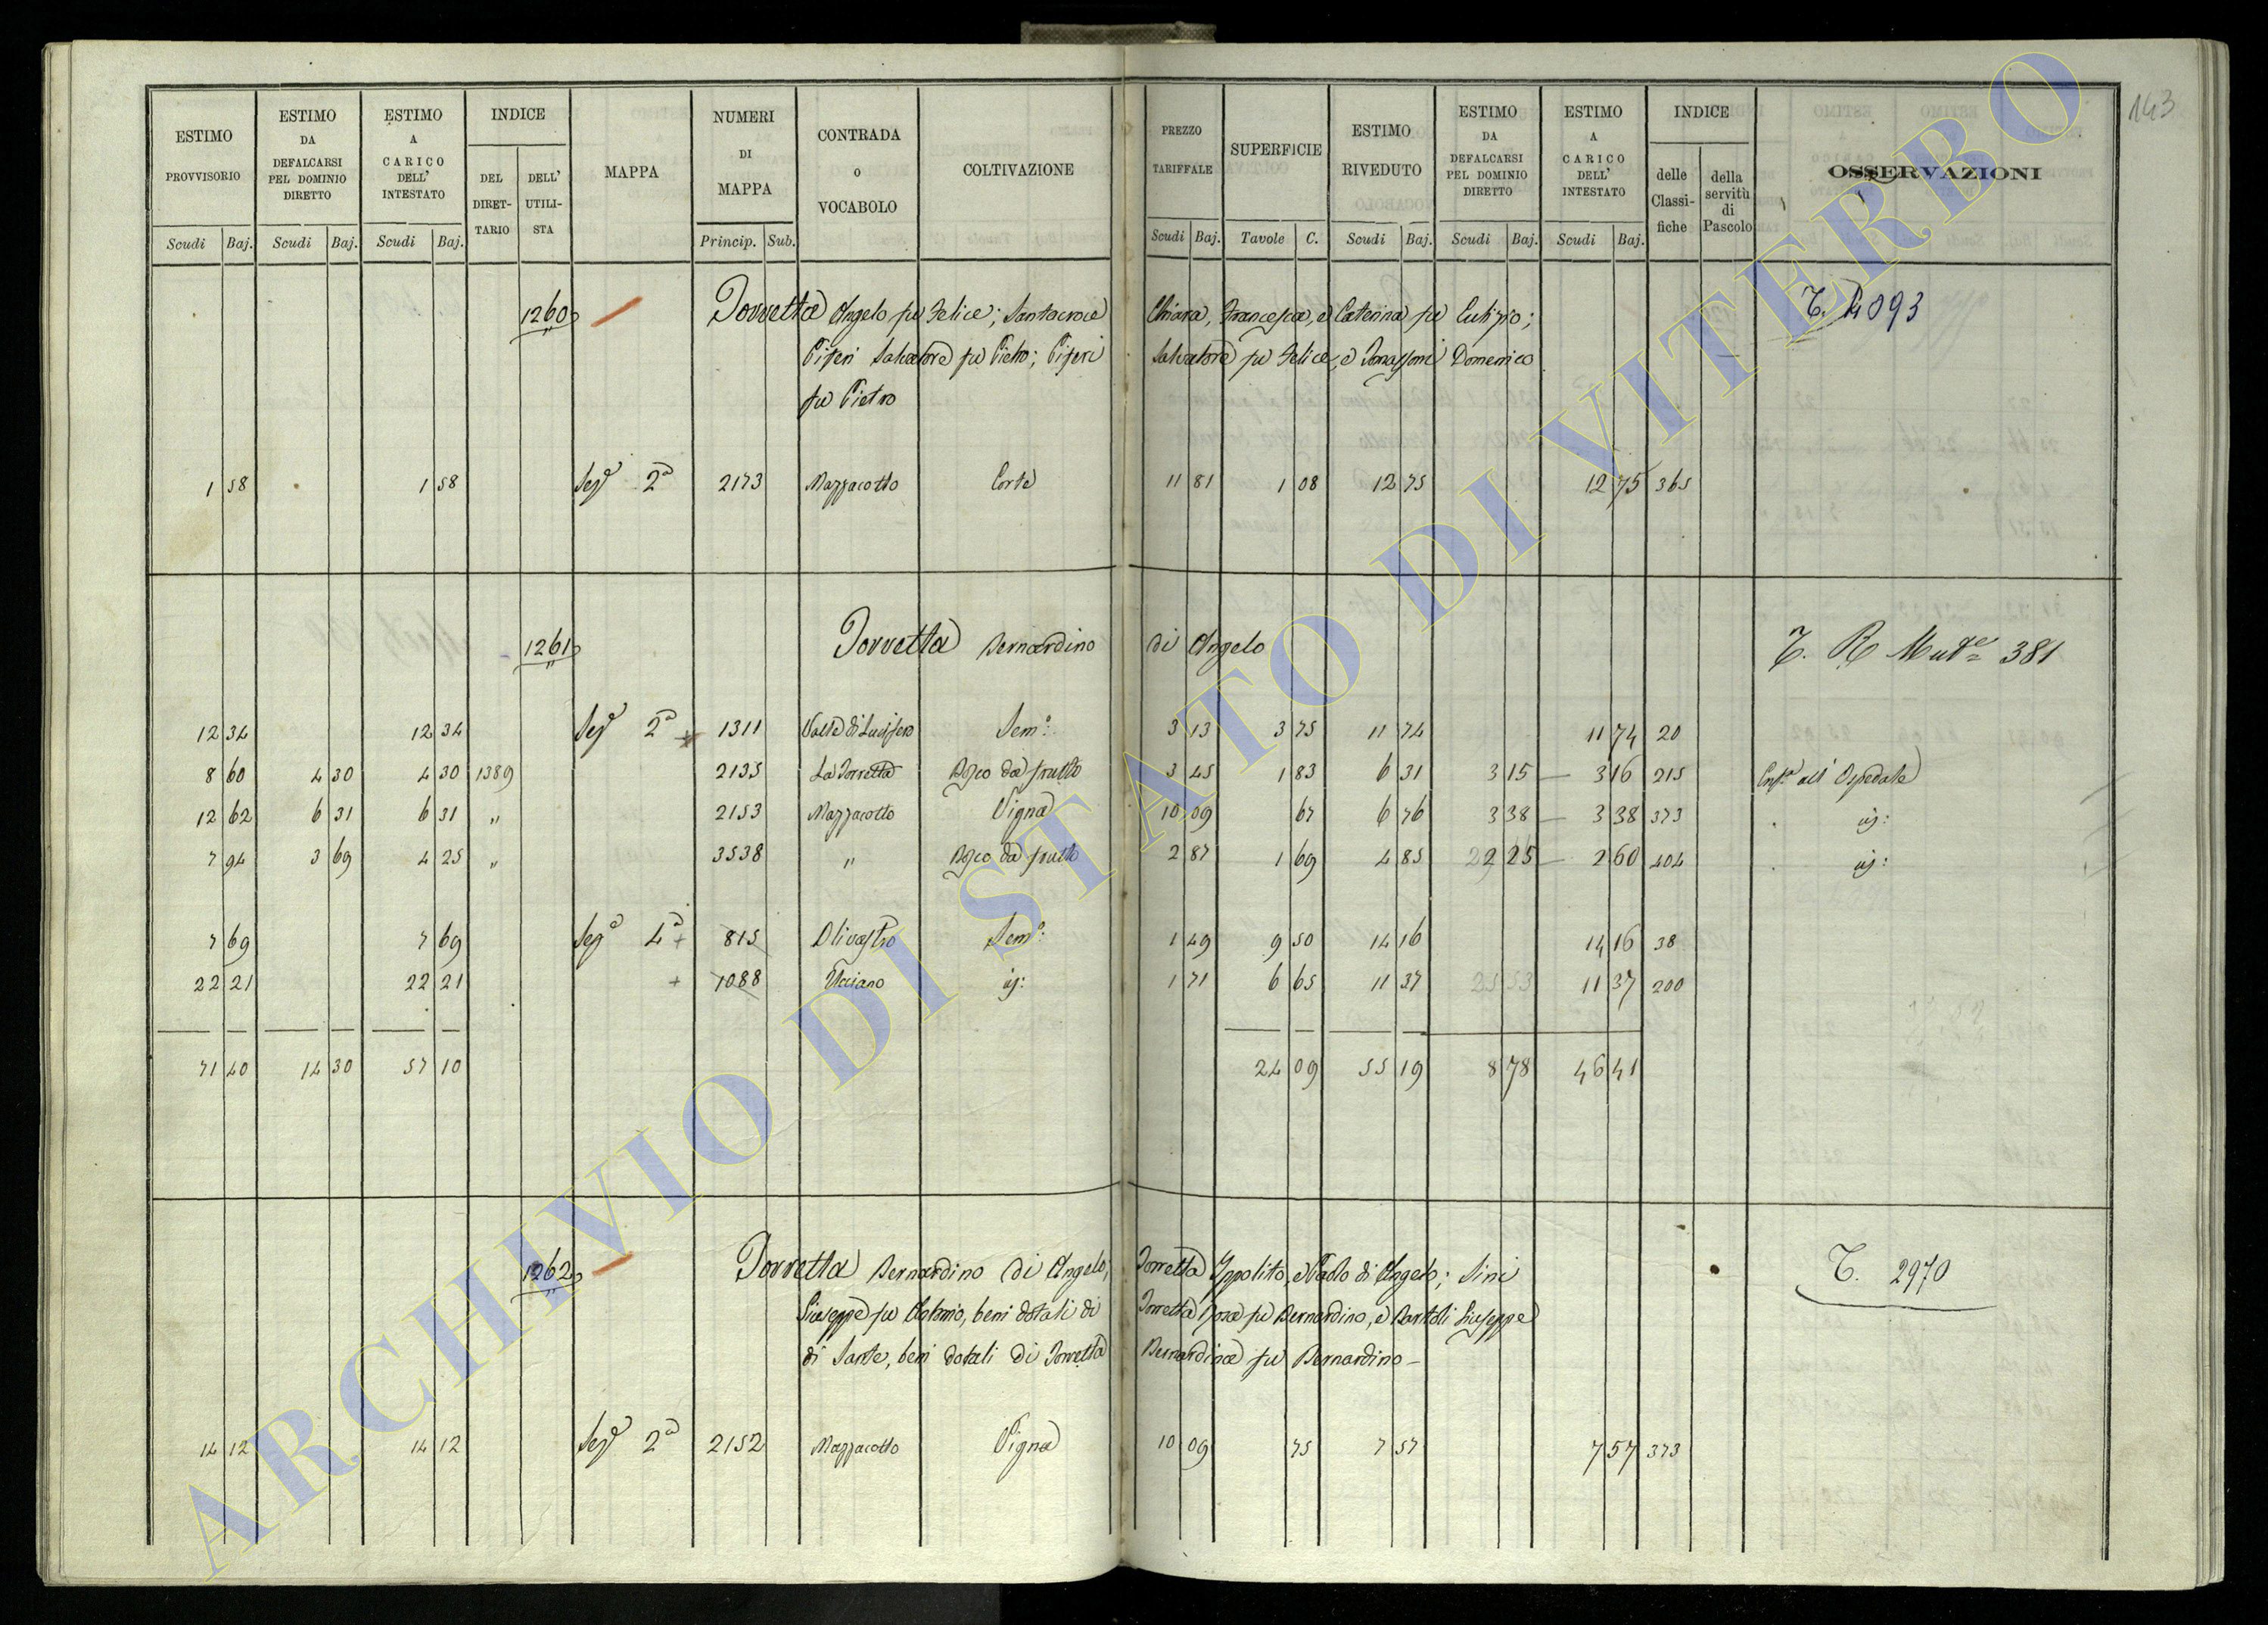 143
ESTIMO PROVVISORIO | ESTIMO DA DEFALCARSI PEL DOMINIO DIRETTO | ESTIMO A CARICO DELL' INTESTATO | INDICE | MAPPA | NUMERI DI MAPPA | CONTRADA O VOCABOLO | COLTIVAZIONE | PREZZO TARIFFALE | SUPERFICIE | ESTIMO RIVEDUTO | ESTIMO DA DEFALCARSI PEL DOMINIO DIRETTO | ESTIMO A CARICO DELL' INTESTATO | INDICE | OSSERVAZIONI
DEL DIRET-TARIO | DELL' UTILI-STA | delle Classi-fiche | della servitù di Pascolo
Scudi | Baj. | Scudi | Baj. | Scudi | Baj. | Princip. | Sub. | Scudi | Baj. | Tavole | C. | Scudi | Baj. | Scudi | Baj. | Scudi | Baj.
1260 Torretta Angelo fu Felice; Santacroce Chiara, Francesca, e Caterina fu Eutizio; T. 4093
Piferi Salvatore fu Pietro; Piferi Salvatore fu Felice, e Tomassoni Domenico
fu Pietro
1 58 | 1 58 | Sez. 2a | 2173 | Mazzacotto | Corte | 11 81 | 1 08 | 12 75 | 12 75 | 365
1261 Torretta Bernardino di Angelo T. R 381
12 34 | 12 34 | Sez. 2a + | 1311 | Valle di Lucifero | Sem.o | 3 13 | 3 75 | 11 74 | 11 74 | 20
8 60 | 4 30 | 4 30 | 1389 | 2135 | La Torretta | Bosco da frutto | 3 45 | 1 83 | 6 31 | 3 15 | 3 16 | 215 | all' Ospedale
12 62 | 6 31 | 6 31 | " | 2153 | Mazzacotto | Vigna | 10 09 | 67 | 6 76 | 3 38 | 3 38 | 373 | id:
7 94 | 3 69 | 4 25 | " | 3538 | " | Bosco da frutto | 2 87 | 1 69 | 4 85 | 2 25 | 2 60 | 404 | id:
7 69 | 7 69 | Sez.a 4a + | 815 | Olivastro | Sem.o | 1 49 | 9 50 | 14 16 | 14 16 | 38
22 21 | 22 21 | + | 1088 | id: | 1 71 | 6 65 | 11 37 | 11 37 | 200
71 40 | 14 30 | 57 10 | 24 09 | 55 19 | 8 78 | 46 41
1262 Torretta Bernardino di Angelo; Torretta Ippolito, e Paolo di Angelo; Sini T. 2970
Giuseppe fu Antonio, beni dotali di Torretta Rosa fu Bernardino, e Bartoli Giuseppe
di Sante, beni dotali di Torretta Bernardina fu Bernardino
14 12 | 14 12 | Sez. 2a | 2152 | Mazzacotto | Vigna | 10 09 | 75 | 7 57 | 7 57 | 373
ARCHIVIO DI STATO DI VITERBO